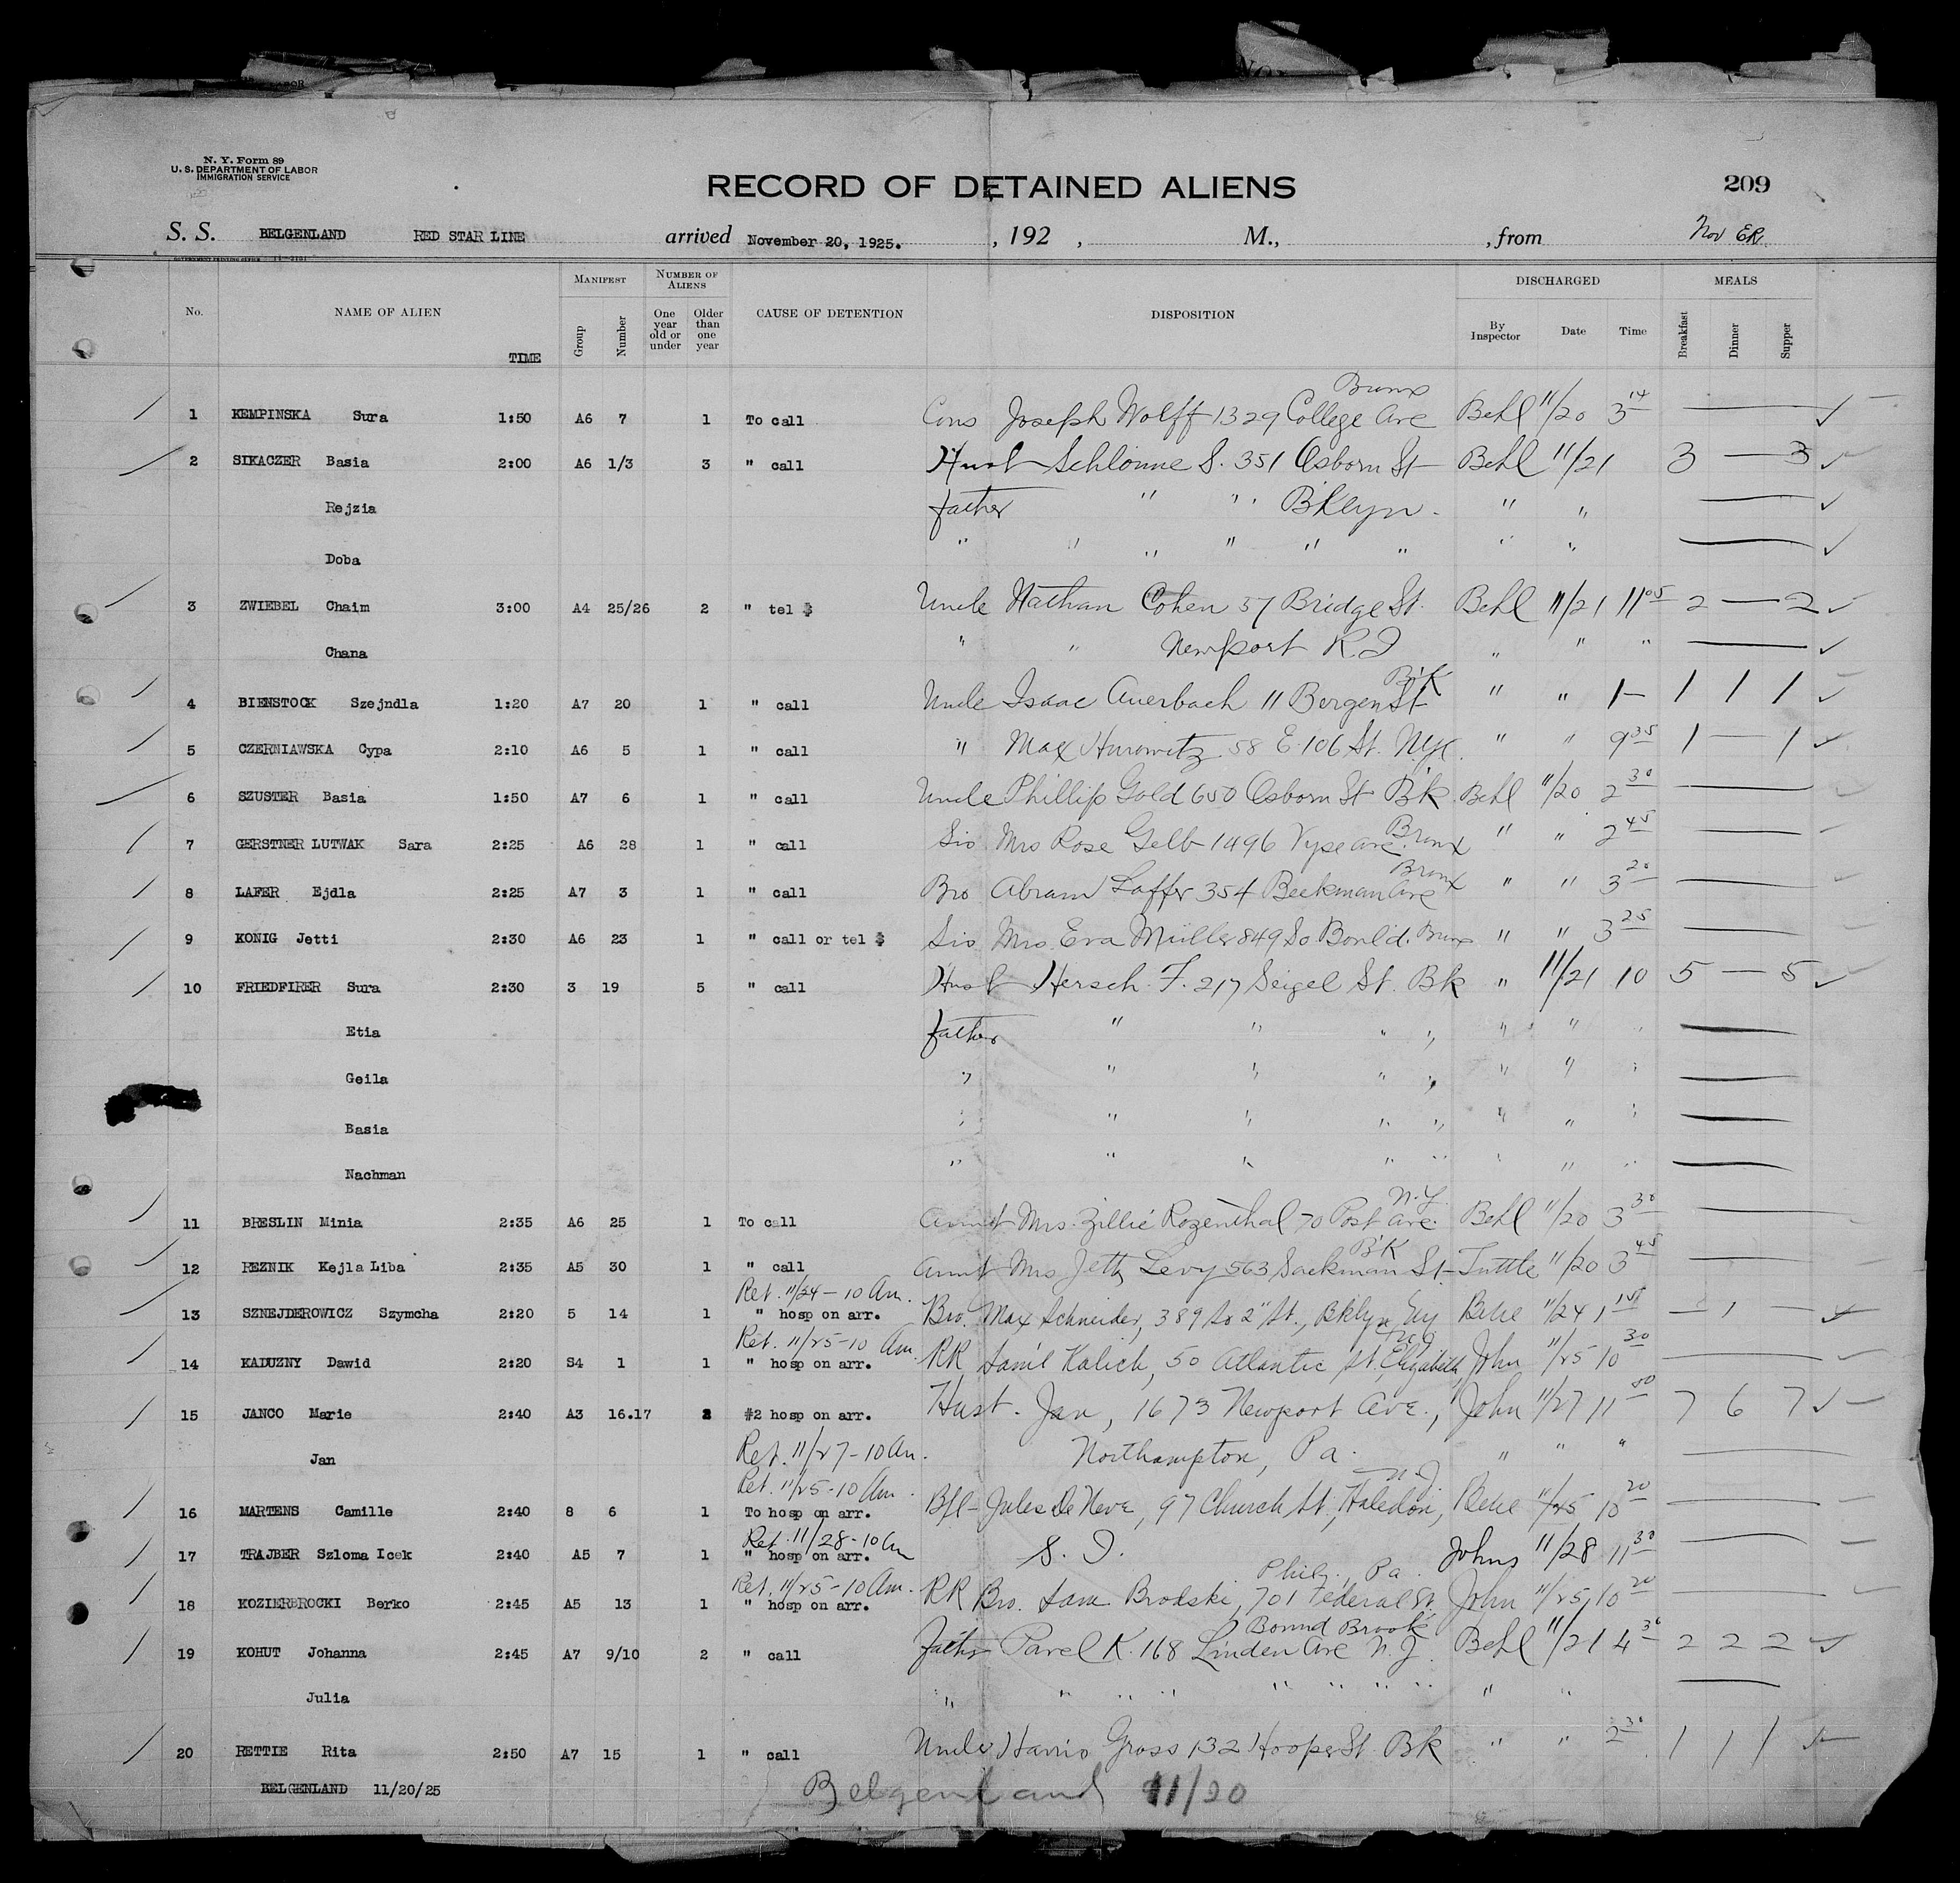 N. Y. Form 89
U. S. DEPARTMENT OF LABOR
IMMIGRATION SERVICE
RECORD OF DETAINED ALIENS 209
S. S. BELGENLAND RED STAR LINE arrived November 20, 1925. , 192 , M., , from Nov ER.
No. NAME OF ALIEN TIME MANIFEST Group Number NUMBER OF ALIENS One year old or under Older than one year CAUSE OF DETENTION DISPOSITION DISCHARGED By Inspector Date Time MEALS Breakfast Dinner Supper
Bronx
1 KEMPINSKA Sura 1:50 A6 7 1 To call Cons Joseph Wolff 1329 College Ave Behl 11/20 3 14
2 SIKACZER Basia 2:00 A6 1/3 3 " call Husb Schlomme S. 351 Osborn St Behl 11/21 3 — 3
Rejzia father " " B'klyn. " "
Doba " " " " " " " "
3 ZWIEBEL Chaim 3:00 A4 25/26 2 " tel $ Uncle Nathan Cohen 37 Bridge St. Behl 11/21 11 05 2 — 2
Chana " " Newport R.I " " "
B'k
4 BIENSTOCK Szejndla 1:20 A7 20 1 " call Uncle Isaac Auerbach 11 Bergen St " " 1— 1 1 1
5 CZERNIAWSKA Cypa 2:10 A6 5 1 " call " Max Hurowitz 58 E. 106 St. NYC. " " 9 35 1 — 1
6 SZUSTER Basia 1:50 A7 6 1 " call Uncle Phillip Gold 650 Osborn St B'k. Behl 11/20 2 30
7 GERSTNER LUTWAK Sara 2:25 A6 28 1 " call Sis Mrs Rose Gelb 1496 Vyse ave. Bronx " " 2 45
Bronx
8 LAFER Ejdla 2:25 A7 3 1 " call Bro Abram Laffer 354 Beekman Ave " " 3 20
9 KONIG Jetti 2:30 A6 23 1 " call or tel $ Sis Mrs. Eva Muller 849 So. Boul'd. Bronx " " 3 25
10 FRIEDFIRER Sura 2:30 3 19 5 " call Husb Hersch F. 217 Seigel St. Bk " 11/21 10 5 — 5
Etia father " " " " " " "
Geila " " " " " " " "
Basia " " " " " " " "
Nachman " " " " " " " "
N.Y.
11 BRESLIN Minia 2:35 A6 25 1 To call Aunt Mrs. Zillie Rozenthal 70 Post Ave. Behl 11/20 3 30
B'K
12 REZNIK Kejla Liba 2:35 A5 30 1 " call Aunt Mrs Jetty Levy 563 Sackman St— Tuttle 11/20 3 45
Ret. 11/24 – 10 Am.
13 SZNEJDEROWICZ Szymcha 2:20 5 14 1 " hosp on arr. Bro. Max Schneider, 389 So 2" St., Bklyn 11/24 — 1 —
Ret. 11/25 – 10 Am.
14 KADUZNY Dawid 2:20 S4 1 1 " hosp on arr. RR Saml Kalich, 50 Atlantic St. Elizabeth, John 11/25 10 30
15 JANCO Marie 2:40 A3 16.17 2 #2 hosp on arr. Husb. Jan, 1673 Newport Ave., John 11/27 11 50 7 6 7
Jan Ret. 11/27 – 10 Am. Northampton, Pa. " " "
Ret. 11/25 – 10 Am. N.J.
16 MARTENS Camille 2:40 8 6 1 To hosp on arr. Bfl– Jules De Neve, 97 Church St, Haledon, 11/25 10 20
Ret. 11/28 – 10 Am
17 TRAJBER Szloma Icek 2:40 A5 7 1 " hosp on arr. S. I. Johns 11/28 11 30
Ret. 11/25 – 10 Am. Phil., Pa.
18 KOZIERBROCKI Berko 2:45 A5 13 1 " hosp on arr. RR Bro. Sam Brodski, 701 Federal St. John 11/25 10 20
Bound Brook
19 KOHUT Johanna 2:45 A7 9/10 2 " call Father Pavel K. 168 Linden Ave N.J. Behl 11/21 4 30 2 2 2
Julia " " " " " " " " " "
20 RETTIE Rita 2:50 A7 15 1 " call Uncle Harris Gross 132 Hooper St. Bk " " 2 30 1 1 1
BELGENLAND 11/20/25 Belgenland 11/20